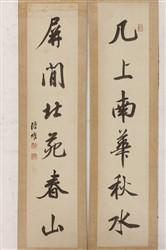 几上南華秋水
屏間北苑春山